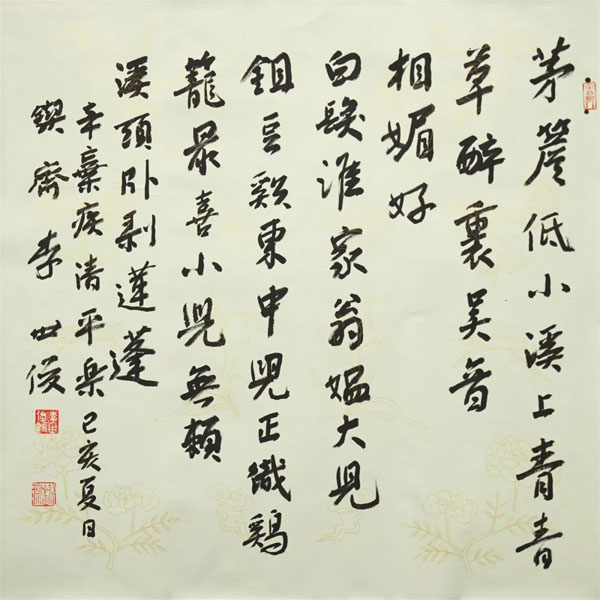 茅簷低小溪上青青
草醉裏吴音
相媚好
白髮誰家翁媪大兒
鉏豆谿東中兒正織鷄
籠最喜小兒無賴
溪頭卧剥蓮蓬
辛棄疾清平樂己亥夏日
鍥齋李世俊